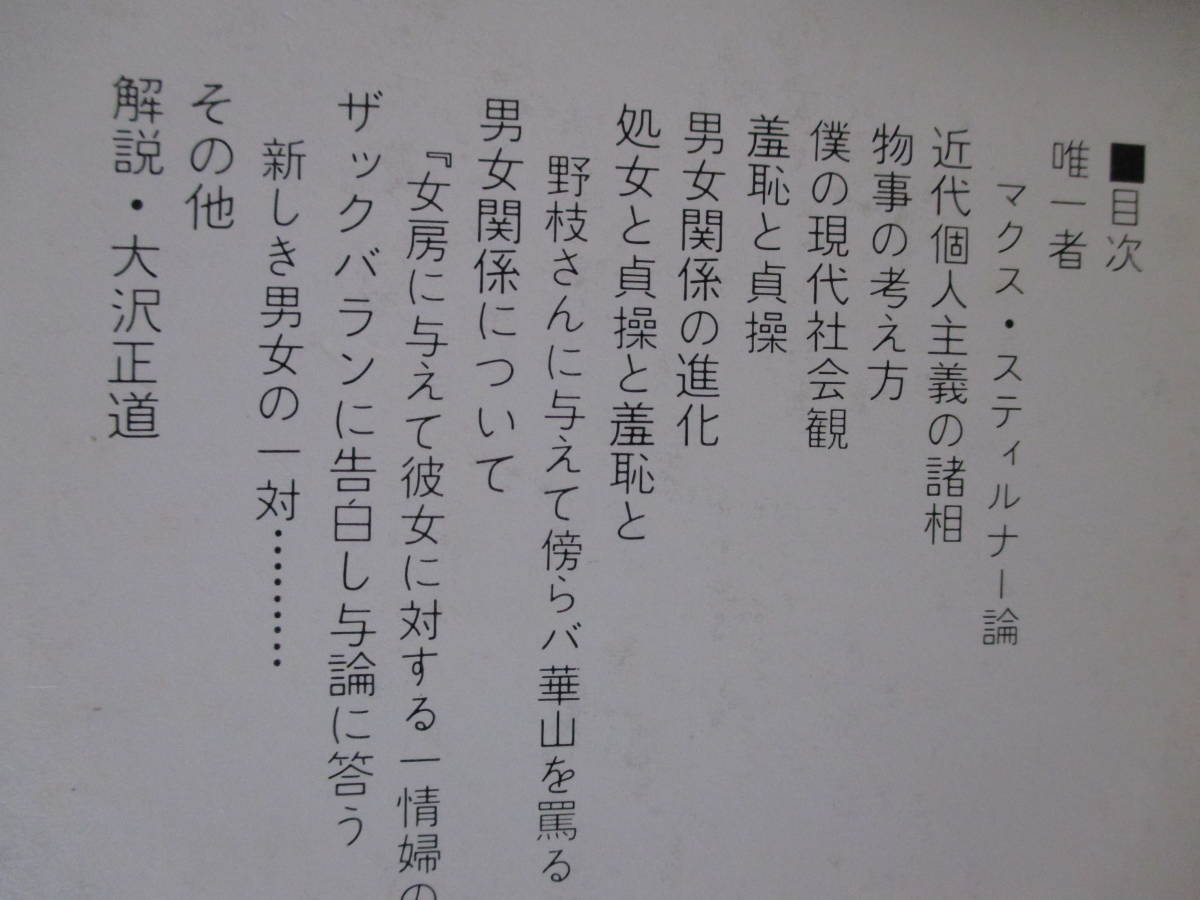 ■目次
唯一者
マクス・スティルナー論
近代個人主義の諸相
物事の考え方
僕の現代社会観
羞恥と貞操
男女関係の進化
処女と貞操と羞恥と
野枝さんに与えて傍らバ華山を罵る
男女関係について
『女房に与えて彼女に対する一情婦の
ザックバランに告白し与論に答う
新しき男女の一対…………
その他
解説・大沢正道